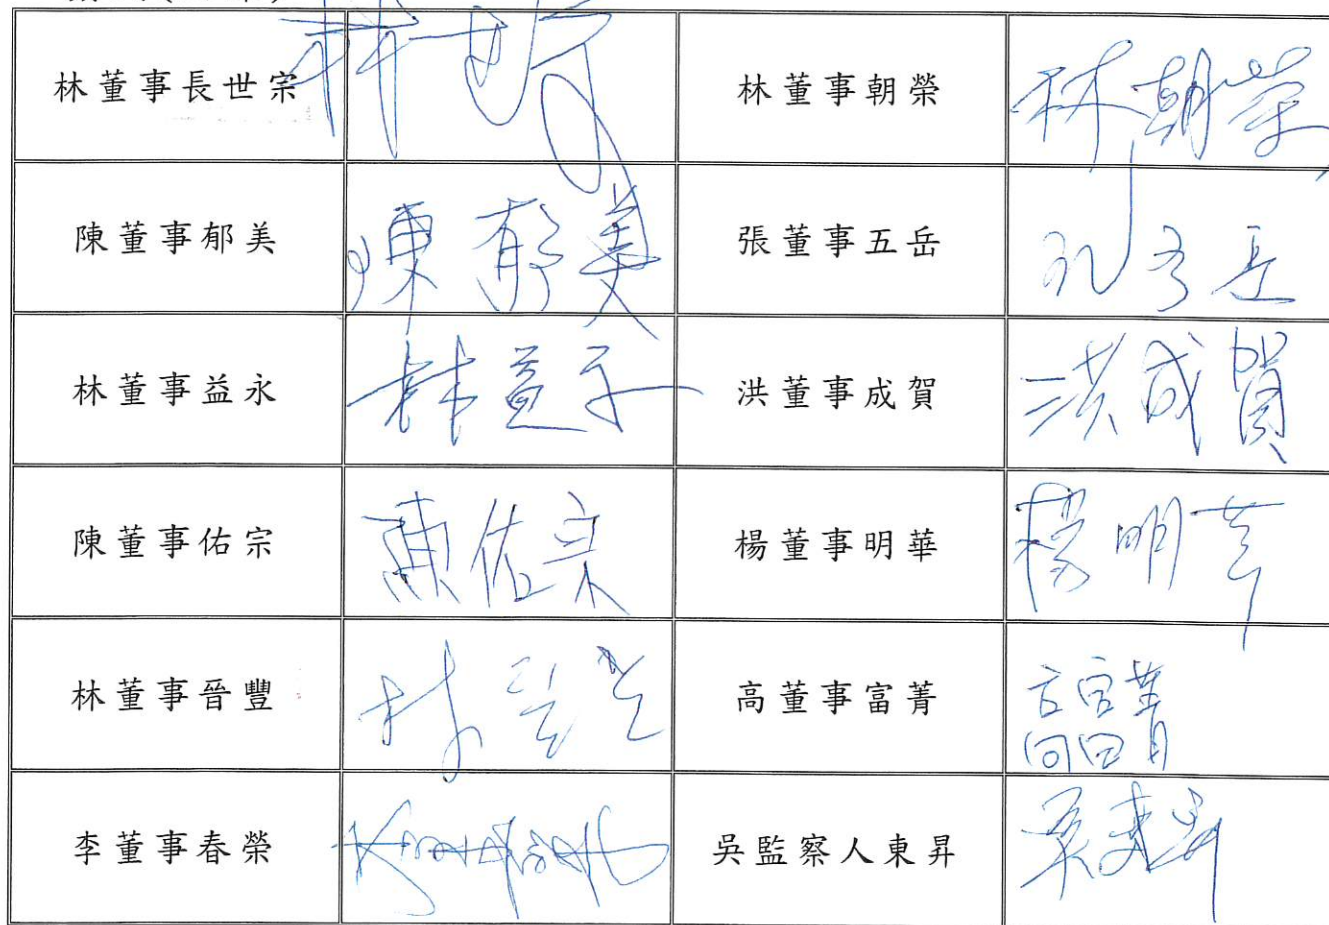 林董事長世宗 林世宗 林董事朝榮 林朝榮
陳董事郁美 陳郁美 張董事五岳 張五岳
林董事益永 林益永 洪董事成賀 洪成賀
陳董事佑宗 陳佑宗 楊董事明華 楊明華
林董事晉豐 林晉豐 高董事富菁 高富菁
李董事春榮 吳監察人東昇 吳東昇